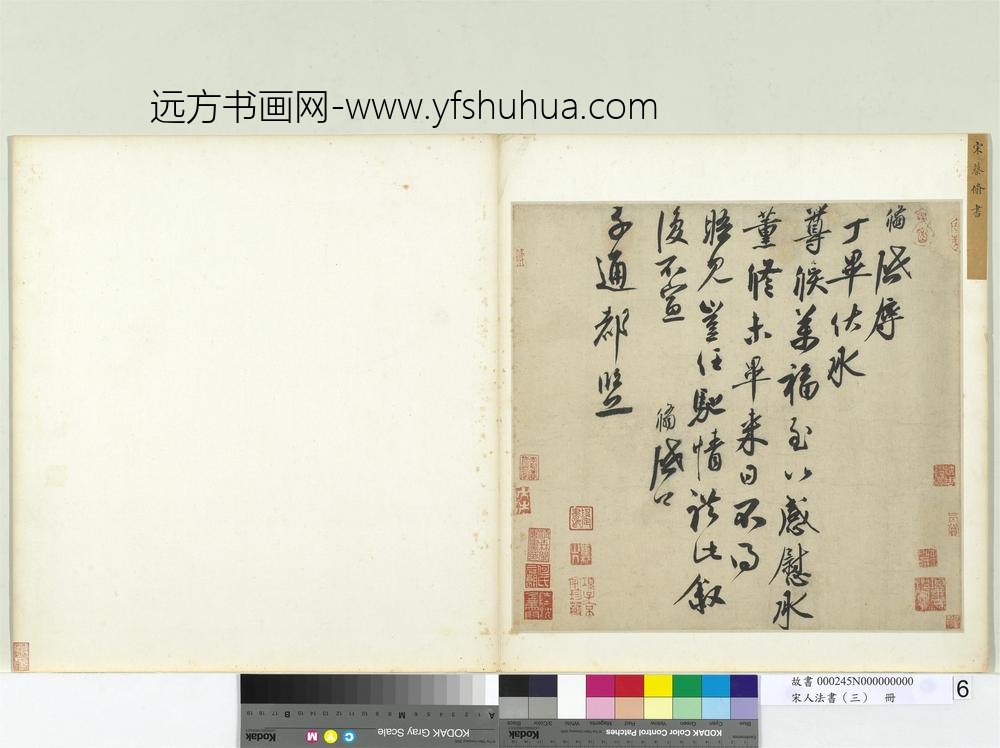 远方书画网-www.yfshuhua.com
宋蔡脩書
脩啟辱
丁畢伏承
尊候萬福至以感慰承
薰修未畢來日不得
晤見豈任馳情謹此敘
復不宣 脩啟
子通都監
故書 000245N000000000
宋人法書（三） 冊
6
KODAK Gray Scale
Kodak
C Y M
A 1 2 3 4 5 6 M 8 9 10 11 12 13 14 15 B 17 18 19
KODAK Color Control Patches
Kodak
Blue Cyan Green Yellow Red Magenta White 3/Color Black